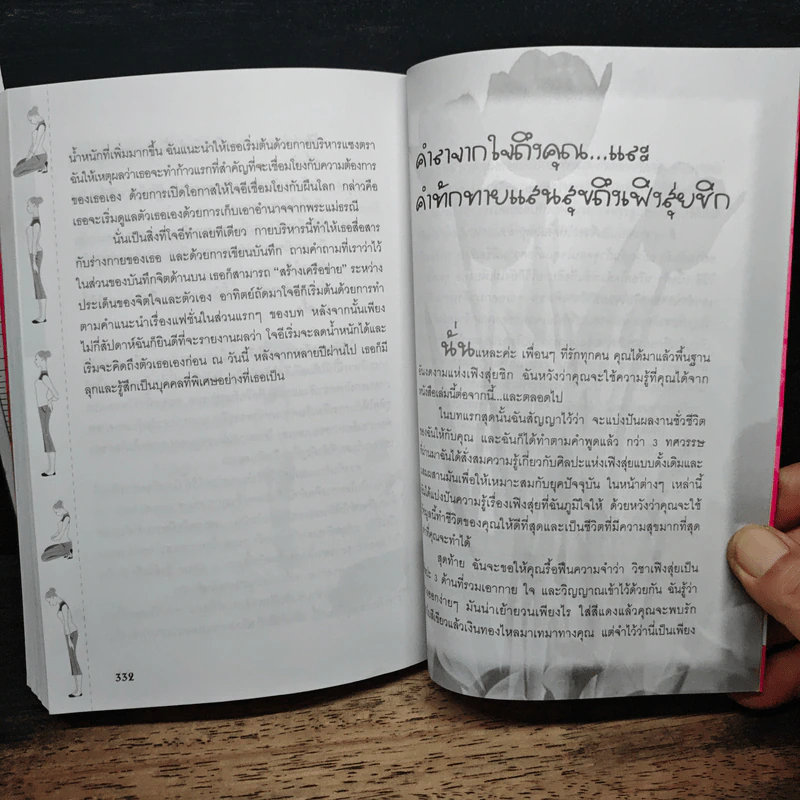 น้ำหนักที่เพิ่มมากขึ้น ฉันแนะนำให้เธอเริ่มต้นด้วยกายบริหารแชงตรา
ฉันให้เหตุผลว่าเธอจะทำก้าวแรกที่สำคัญที่จะเชื่อมโยงกับความต้องการ
ของเธอเอง ด้วยการเปิดโอกาสให้ใจอีเชื่อมโยงกับผืนโลก กล่าวคือ
เธอจะเริ่มดูแลตัวเธอเองด้วยการเก็บเอาอำนาจจากพระแม่ธรณี
นั่นเป็นสิ่งที่ใจอีทำเลยทีเดียว กายบริหารนี้ทำให้เธอสื่อสาร
กับร่างกายของเธอ และด้วยการเขียนบันทึก ถามคำถามที่เราว่าไว้
ในส่วนของบันทึกจิตด้านบน เธอก็สามารถ “สร้างเครือข่าย” ระหว่าง
ประเด็นของจิตใจและตัวเอง อาทิตย์ถัดมาใจอีก็เริ่มต้นด้วยการทำ
ตามคำแนะนำเรื่องแฟชั่นในส่วนแรกๆ ของบท หลังจากนั้นเพียง
ไม่กี่สัปดาห์ฉันก็ยินดีที่จะรายงานผลว่า ใจอีเริ่มจะลดน้ำหนักได้และ
เริ่มจะคิดถึงตัวเธอเองก่อน ณ วันนี้ หลังจากหลายปีผ่านไป เธอก็มี
ลุกและรู้สึกเป็นบุคคลที่พิเศษอย่างที่เธอเป็น
332
คำลาจากใจถึงคุณ...และ
คำทักทายแสนสุขถึงเฟิงสุ่ยชิก
นั่นแหละค่ะ เพื่อนๆ ที่รักทุกคน คุณได้มาแล้วพื้นฐาน
อันงดงามแห่งเฟิงสุ่ยชิก ฉันหวังว่าคุณจะใช้ความรู้ที่คุณได้จาก
หนังสือเล่มนี้ต่อจากนี้...และตลอดไป
ในบทแรกสุดนั้นฉันสัญญาไว้ว่า จะแบ่งปันผลงานชั่วชีวิต
ของฉันให้กับคุณ และฉันก็ได้ทำตามคำพูดแล้ว กว่า 3 ทศวรรษ
ที่ผ่านมาฉันได้สั่งสมความรู้เกี่ยวกับศิลปะแห่งเฟิงสุ่ยแบบดั้งเดิมและ
ผสมผสานมันเพื่อให้เหมาะสมกับยุคปัจจุบัน ในหน้าต่างๆ เหล่านี้
ฉันได้แบ่งปันความรู้เรื่องเฟิงสุ่ยที่ฉันภูมิใจให้ ด้วยหวังว่าคุณจะใช้
ข้อมูลนี้ทำชีวิตของคุณให้ดีที่สุดและเป็นชีวิตที่มีความสุขมากที่สุด
ที่คุณจะทำได้
สุดท้าย ฉันจะขอให้คุณรื้อฟื้นความจำว่า วิชาเฟิงสุ่ยเป็น
3 ด้านที่รวมเอากาย ใจ และวิญญาณเข้าไว้ด้วยกัน ฉันรู้ว่า
ง่ายๆ มันน่าเย้ายวนเพียงไร ใส่สีแดงแล้วคุณจะพบรัก
สีเขียวแล้วเงินทองไหลมาเทมาทางคุณ แต่จำไว้ว่านี่เป็นเพียง